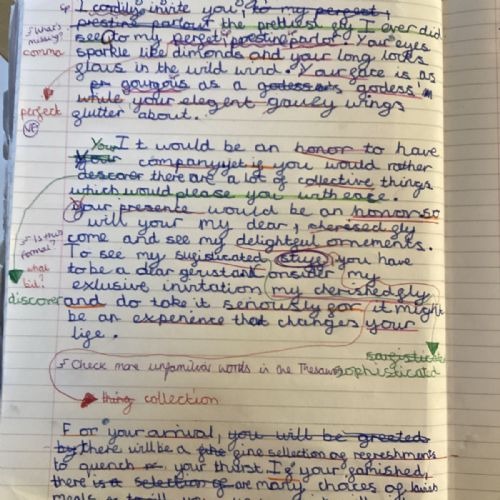 I cordily invite you, to my perfect,
prestine parlour the prettiest fly I ever did
see to my perfect, prestine parlor. Your eyes
sparkle like dimonds and your long locks
glows in the wild wind. Your face is as
gougous as a godess's godess's
while your elegent gauzy wings
flutter about.
*What's missing?
comma
perfect
It would be an honor to have
Your company yet if you would rather
descover there are a lot of collective things
which would please you with ease.
Your presente would be an honor so
will your my dear, cheresedgly
come and see my delightful ornements.
To see my sugisticated stuff, you have
to be a dear
onsider my
exlusive invitation my cherishedgly
and do take it seriously for it might
be an experience that changes your
life.
* Is this formal?
what bid?
discover
sophisticated
* Check more unfamiliar words in the Thesaurus
thing collection
For your arrival, you will be greeted
by there will be a fine selection of refreshments
to quench your thirst If your famished,
there is a selection of are many choices of lavish
meals